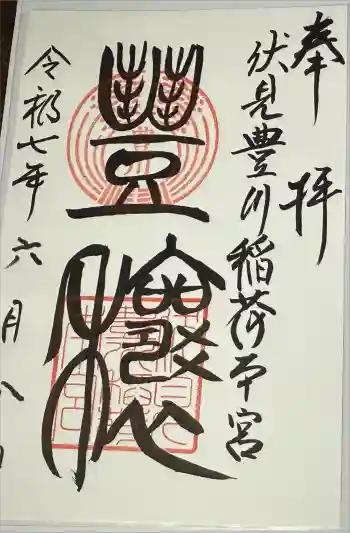 奉拝
伏見豊川稲荷本宮
豐
令和七年六月八日